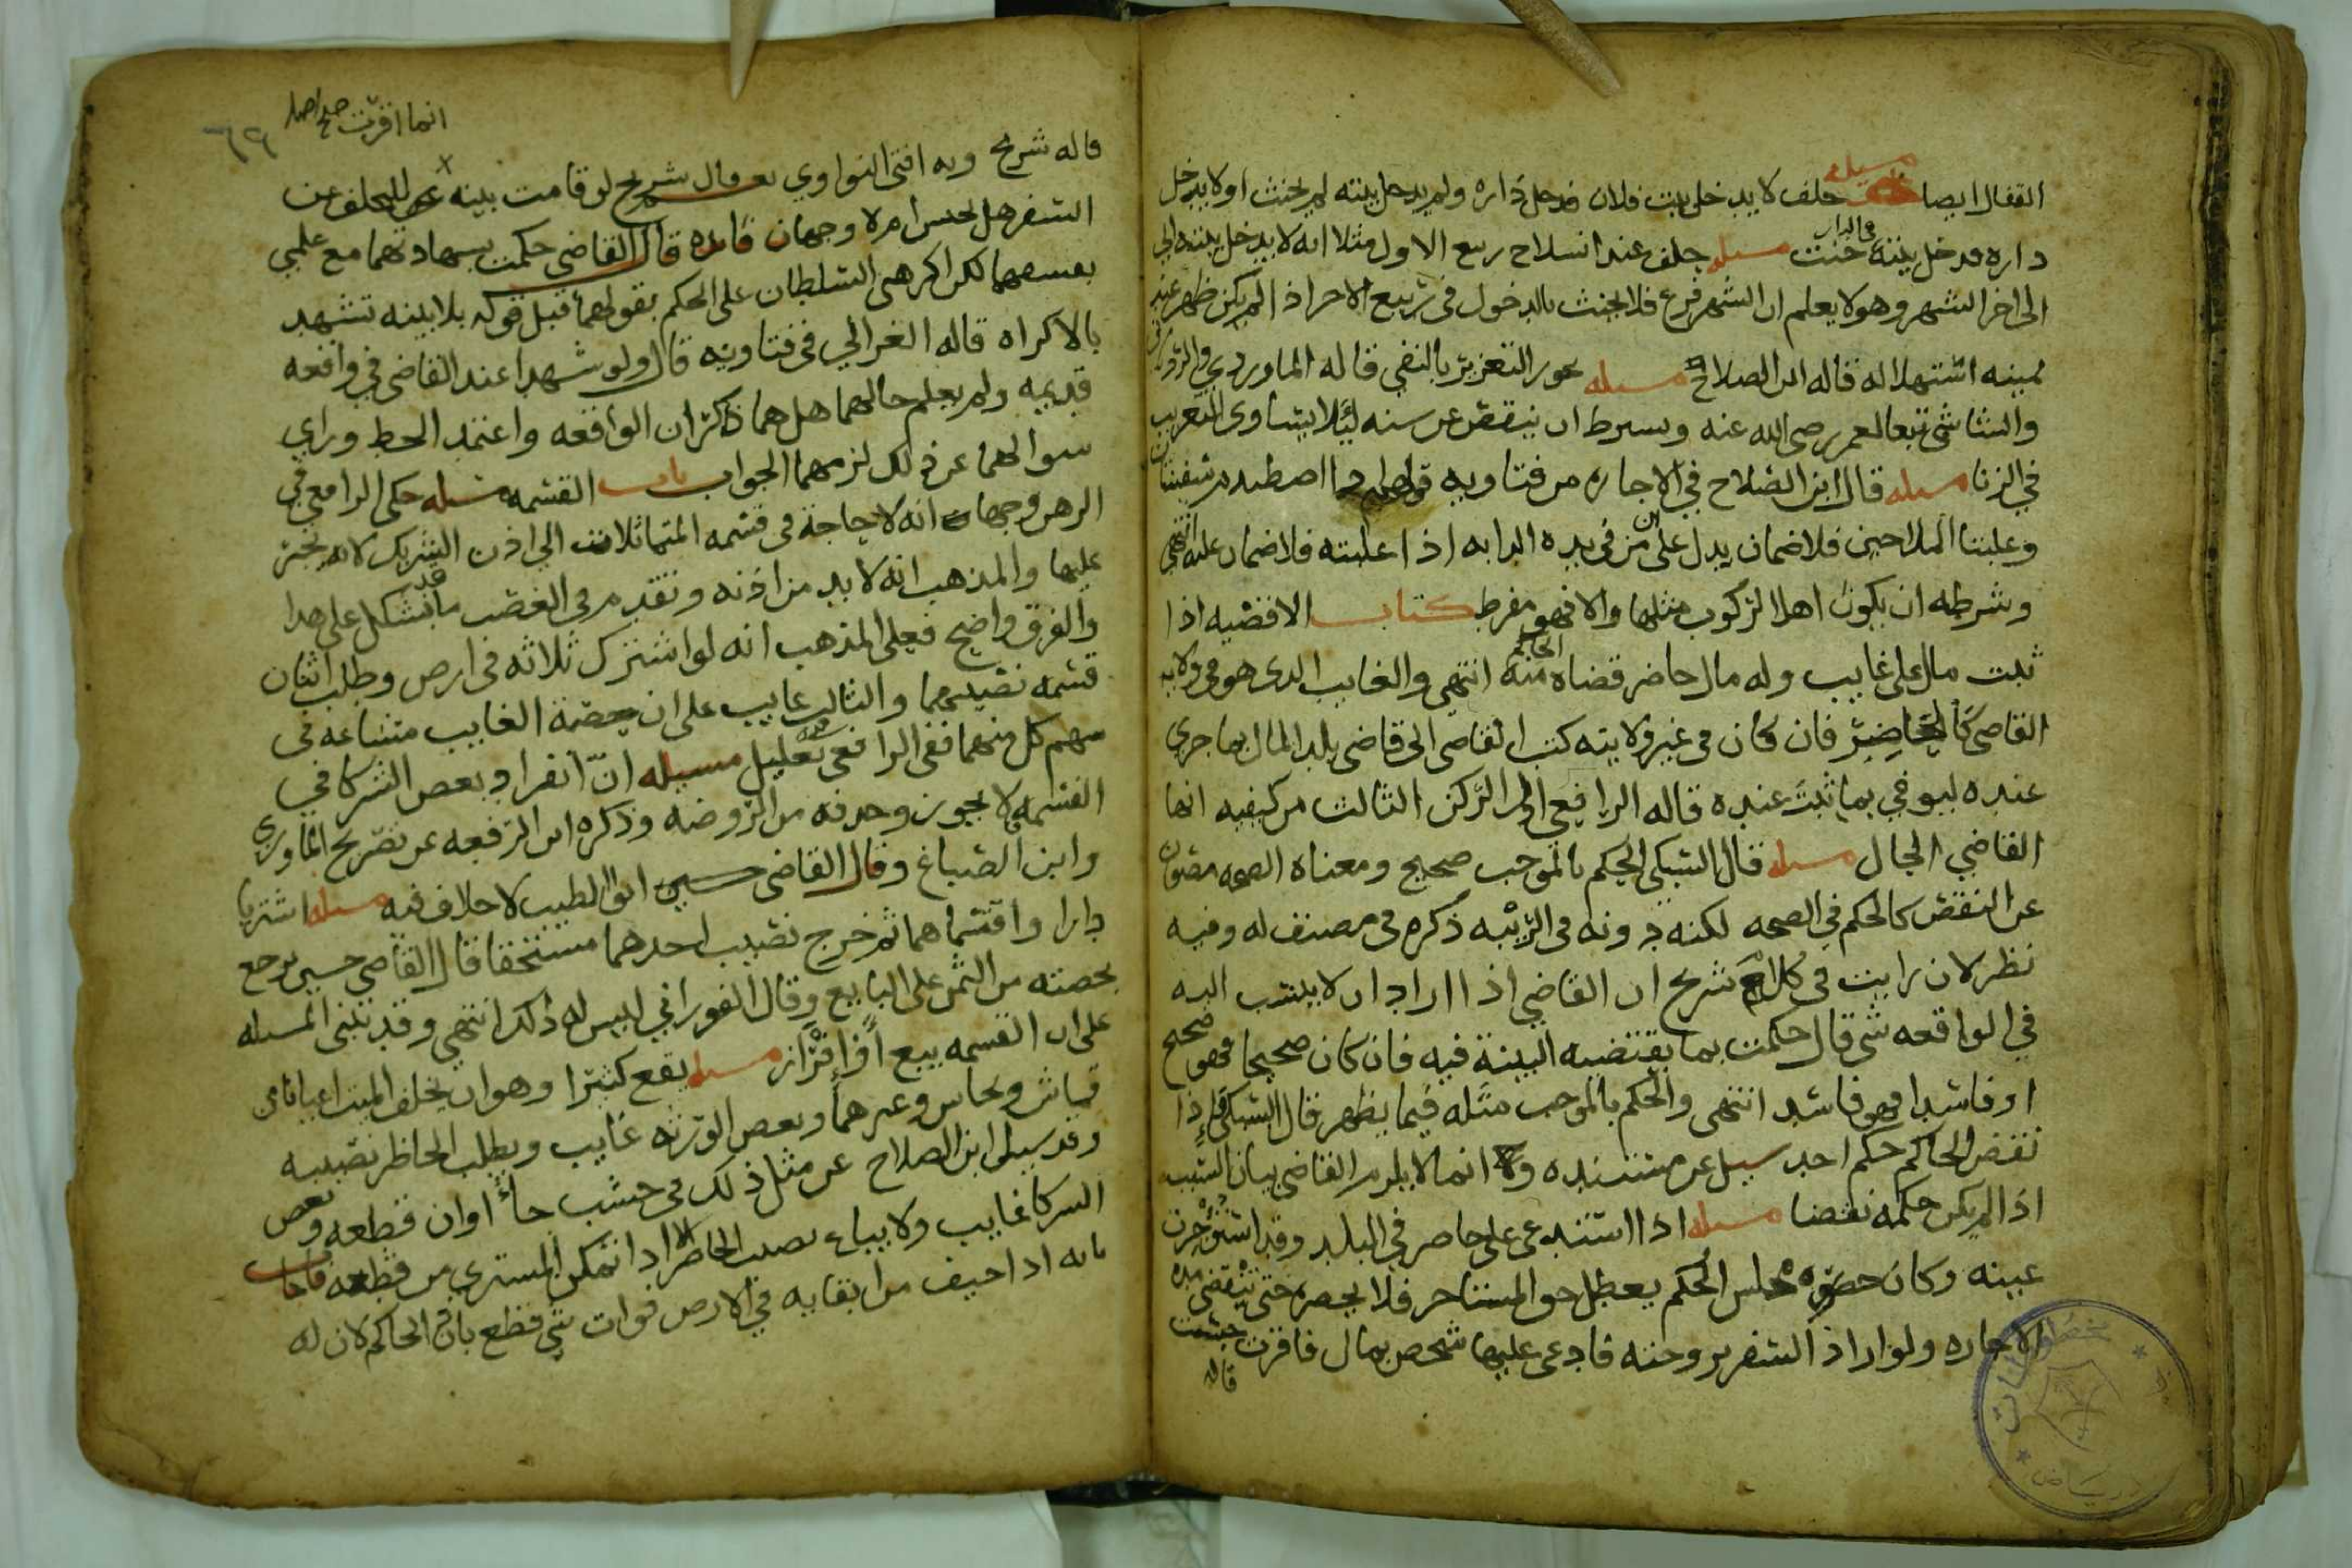 القفال ايضا مسيله حلف لا يدخل بيت فلان فدخل داره ولم يدخل بيته لم يحنث او لا يدخل
داره فدخل بيته في الدار حنث مسله حلف عند انسلاخ ربيع الاول مثلا انه لا يدخل بيته الى
الى اخر الشهر وهو لا يعلم ان الشهر فرغ فلا يحنث بالدخول في ربيع الاخر اذ الم يكن ظهر عند
يمينه استهلاله قاله ابن الصلاح مسله يجوز التعزير بالنفي قاله الماوردي
والشاشي تبعا لعمر رضي الله عنه ويشترط ان ينقص عن سنه ليلا يتساوى التعزير
في الزنا مسله قال ابن الصلاح في الاجاره من فتاويه
وغلبتا الملاحين فلا ضمان يدل على ان من في يده الدابه اذا غلبته فلا ضمان عليه انتهى
وشرطه ان يكون اهلا لركوب مثلها والا فهو مفرط كتاب الاقضيه اذا
ثبت مال على غايب وله مال حاضر قضاه الحاكم منه انتهى والغايب الذي هو في ولايه
القاضي كالحاضر فان كان في غير ولايته كتب القاضي الى قاضي بلد المال بما جرى
عنده ليوفي بما ثبت عنده قاله الرافعي اول الركن الثالث من كيفيه انها
القاضي الحال مسله قال السبكي الحكم بالموجب صحيح ومعناه الصحه مصون
عن النقض كالحكم في الصحه لكنه دونه في الرتبه ذكره في مصنف له وفيه
نظر لان رايت في كلام شريح ان القاضي اذا اراد ان لا ينسب اليه
في الواقعه شي قال حكمت بما يقتضيه البينة فيه فان كان صحيحا فهو صحيح
او فاسدا فهو فاسد انتهى والحكم بالموجب مثله فيما يظهر قال السبكي فاذا
نقض الحاكم حكم احد سيل عن مستنده انما لا يلزم القاضي بيان السبب
اذا لم يكن حكمه نقضا مسله اذا استدعى على حاضر في البلد وقد استؤجرت
عينه وكان حضوره مجلس الحكم يعطل حق المستاجر فلا يحضره حتى تنقضي مده
الاجاره ولو اراد السفر بزوجته فادعى عليها شخص بمال فاقرت حبست
قاله
انما اقرت
قاله شريح وبه افتى النواوي نعم قال شريح لو قامت بينه
السفر هل تحبس ام لا وجهان فائده قال القاضي حكمت بشهادتهما مع علمي
بفسقهما لكن اكرهني السلطان على الحكم بقولهما قبل قوله بلا بينه تشهد
بالاكراه قاله الغزالي في فتاويه قال ولو شهدا عند القاضي في واقعه
قديمه ولم يعلم حالهما هل هما ذاكران الواقعه واعتمد الخط وراى
سوالهما عن ذلك لزمهما الجواب باب القسمه مسله حكى الرافعي في
الرهن وجها انه لا حاجة في قسمه المتماثلات الى اذن الشريك لانه يجبر
عليها والمذهب انه لا بد من اذنه وتقدم في الغصب ما قد يشكل على هذا
والفرق واضح فعلى المذهب انه لو اشترك ثلاثه في ارض وطلب اثنان
قسمه نصيبهما والثالث غايب على ان حصة الغايب مشاعه في
سهم كل منهما ففي الرافعي تعليل مسيله ان انفراد بعض الشركا في
القسمه لا يجوز وحذفه من الروضه وذكره ابن الرفعه عن تصريح الماوردي
وابن الصباغ وقال القاضي حسين ابو الطيب لا خلاف فيه مسله اشتريا
دارا واقتسماها ثم خرج نصيب احدهما مستحقا قال القاضي حسين يرجع
بحصته من الثمن على البايع وقال الفوراني ليس له ذلك انتهى وقد تبنى المسله
على ان القسمه بيع او افراز مسله يقع كثيرا وهو ان يخلف الميت اعيانا من
قماش ونحاس وغيرهما وبعض الورثه غايب ويطلب الحاضر نصيبه
وقد سيل ابن الصلاح عن مثل ذلك في خشب جا اوان قطعه وبعض
الشركا غايب ولا يباع نصيب الحاضر الا اذا تمكن المشتري من قطعه فاجاب
بانه اذا خيف من ابقايه في الارض فوات شي قطع باذن الحاكم لان له